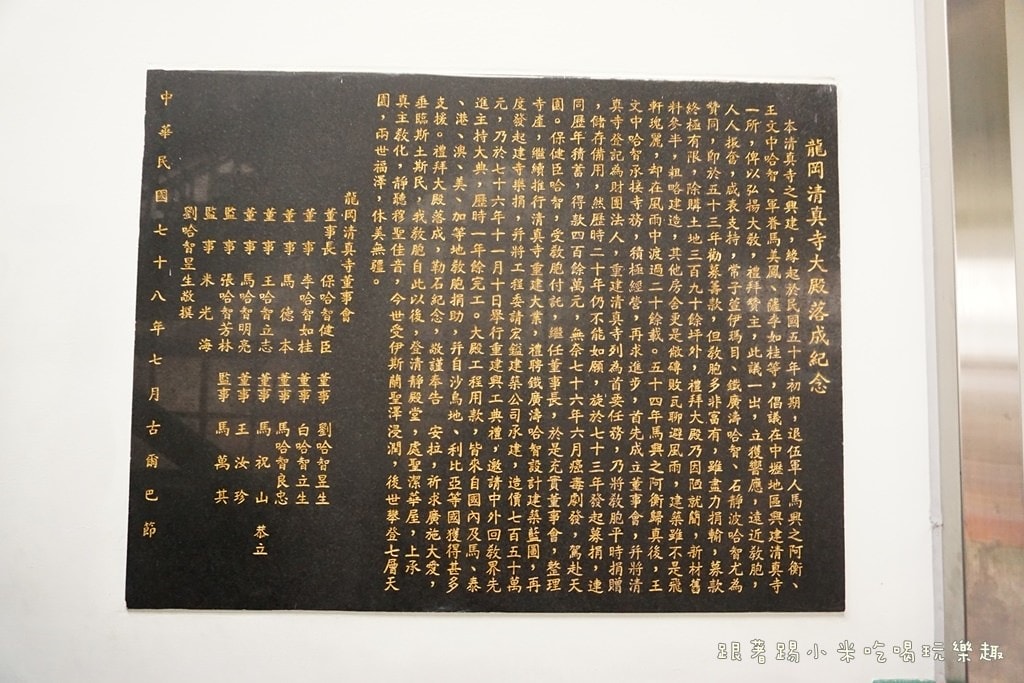 龍岡清真寺大殿落成紀念
本清真寺之興建，緣起於民國五十年初期，退伍軍人馬興之阿衡、
王文中哈智、軍眷馬美鳳、薩李如桂等，倡議在中壢地區興建清真寺
一所，俾以弘揚大教，禮拜贊主，此議一出，立獲響應，遠近教胞，
人人振奮，咸表支持，常子萱伊瑪目、鐵廣濤哈智、石靜波哈智尤為
贊同，即於五十三年勸募籌款，但教胞多非富有，雖盡力捐輸，募款
終極有限，除購土地三百九十餘坪外，禮拜大殿乃因陋就簡，新材舊
料參半，粗略建造，其他房舍更是敝磚敗瓦聊避風雨，建築雖不是飛
軒瑰麗，却在風雨中渡過二十餘載。五十四年馬興之阿衡歸真後，王
文中哈智承接寺務，積極經營，再求進步，首先成立董事會，幷將清
真寺登記為財團法人，重建清真寺列為首要任務，乃將教胞平時捐贈
，儲存備用，然歷時二十年仍不能如願，旋於七十三年發起募捐，連
同歷年積蓄，得款四百餘萬元，無奈七十六年六月癌毒劇發，駕赴天
園。保健臣哈智，受教胞付託，繼任董事長，於是充實董事會，整理
寺產，繼續推行清真寺重建大業，禮聘鐵廣濤哈智設計建築藍圖，再
度發起建寺樂捐，幷將工程委請宏鎰建築公司承建，造價七百五十萬
元，乃於七十六年十一月十日舉行重建興工典禮，邀請中外回教界先
進主持大典，歷時一年餘完工。大殿工程用款，皆來自國內及馬、泰
、港、澳、美、加等地教胞捐助，幷自沙烏地、利比亞等國獲得甚多
支援。禮拜大殿落成，勒石紀念，敬謹奉告　安拉，祈求廣施大愛，
垂臨斯土斯民，我教胞自此以後，登清靜殿堂，處聖潔華屋，上承
真主教化，靜聽穆聖佳音，今世受伊斯蘭聖澤浸潤，後世攀登七層天
園，兩世福澤，休美無疆。
龍岡清真寺董事會
董事長　保哈智健臣　董事　劉哈智昱生
董事　李哈智如桂　董事　白哈智立生
董事　馬德本　董事　馬哈智良忠
董事　王哈智立志　董事　馬祝山　恭立
董事　馬哈智明亮　董事　王汝珍
監事　張哈智芳林　監事　馬萬其
監事　米光海
劉哈智昱生敬撰
中華民國七十八年七月古爾巴節
跟著踢小米吃喝玩樂趣